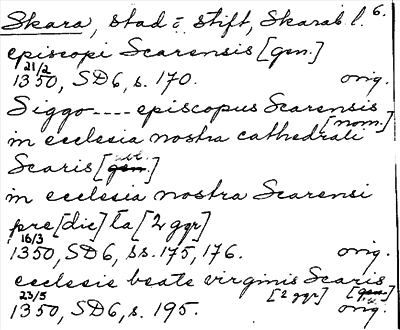 Skara, stad o stift, Skarab l. 6.
episcopi Scarensis [gen.]
21/2
1350, SD6, s. 170. orig.
Siggo ---- episcopus Scarensis
[nom.]
in ecclesia nostra cathedrali
abl.
Scaris [gen.]
in ecclesia nostra Scarensi
pre[dic]ta [2 ggr]
16/3
1350, SD6, ss. 175, 176. orig.
ecclesie beate virginis Scaris
[2 ggr] [gen.]
23/5
1350, SD6, s. 195. orig.